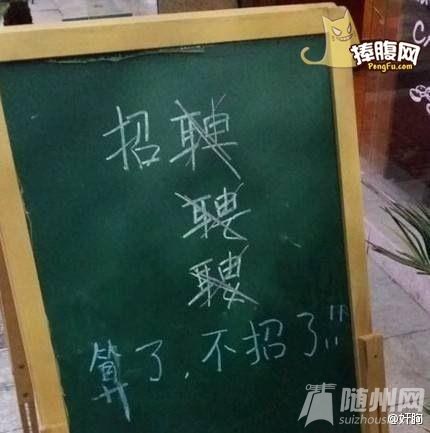 捧腹网
PengFu.com
招聘
聘
聘
算了,不招了!!!
随州网